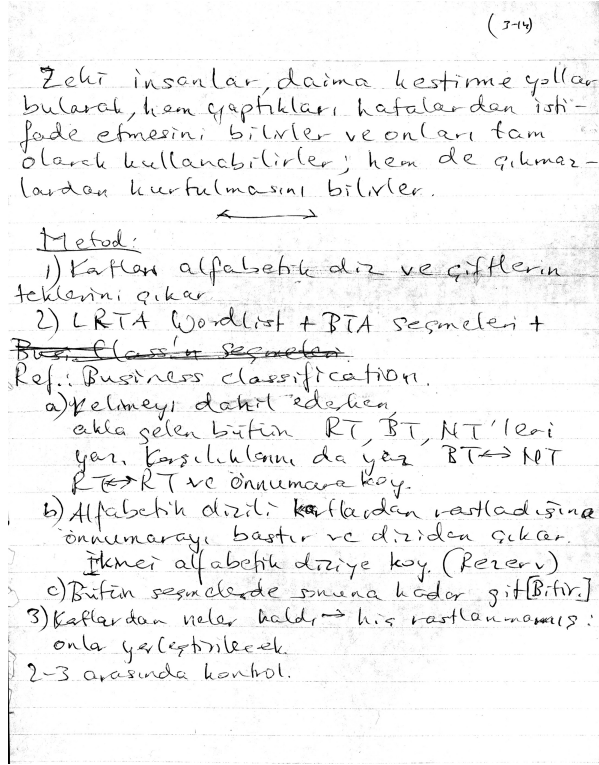 (3-14)
Zeki insanlar, daima kestirme yollar
bularak, hem yaptıkları hatalardan isti-
fade etmesini bilirler ve onları tam
olarak kullanabilirler; hem de çıkmaz-
lardan kurtulmasını bilirler.
Metod:
1) Kartları alfabetik diz ve çiftlerin
teklerini çıkar
2) LRTA Wordlist + BTA seçmeleri +
Busi. Class'ın seçmeleri
Ref.: Business classification.
a) Kelimeyi dahil ederken,
akla gelen bütün RT, BT, NT'leri
yaz. Karşılıklarını da yaz BT↔NT
RT↔RT ve önnumara koy.
b) Alfabetik dizili kartlardan rastladığına
önnumarayı bastır ve diziden çıkar.
İkinci alfabetik diziye koy. (Rezerv)
c) Bütün seçmelerde sonuna kadar git [Bitir.]
3) Kartlardan neler kaldı → hiç rastlanmamış:
onlar yerleştirilecek
2-3 arasında kontrol.